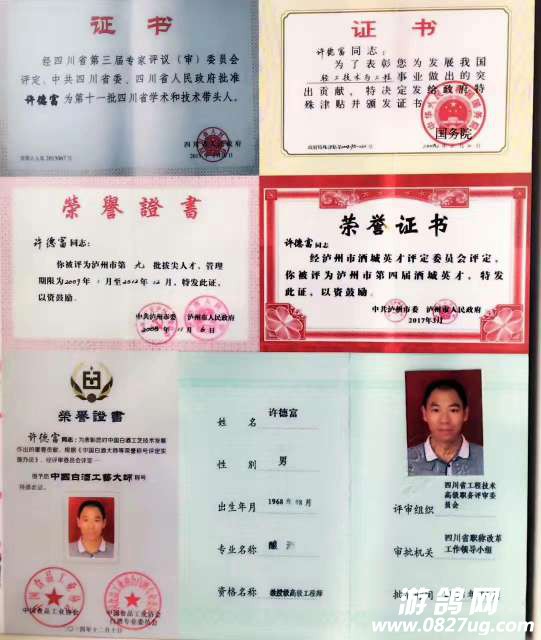 证书
经四川省第三届专家评议（审）委员会
评定、中共四川省委、四川省人民政府批准
许德富为第十一批四川省学术和技术带头人。
四川省人民政府
证书
许德富同志：
为了表彰您为发展我国
轻工技术与工程事业做出的突
出贡献，特决定发给政府特
殊津贴并颁发证书。
国务院
荣譽證書
许德富同志：
你被评为泸州市第九批拔尖人才，管理
期限为2009年1月至2012年12月，特发此证，
以资鼓励。
中共泸州市委 泸州市人民政府
2008年11月6日
荣誉证书
许德富同志
经泸州市酒城英才评定委员会评定，
你被评为泸州市第四届酒城英才，特发
此证，以资鼓励。
中共泸州市委 泸州市人民政府
2017年3月
荣譽證書
许德富同志：为表彰您对中国白酒工艺技术发展
作出的重要贡献，根据《中国白酒大师等荣誉称号评定实
施办法》，经评审委员会评定
授予您中国白酒工艺大师称号
特颁此证。
中国食品工业协会
中国食品工业协会
白酒专业委员会
二〇一四年十二月十日
姓名 许德富
性别 男
出生年月 1968年08月
专业名称 酿
资格名称 教授级高级工程师
评审组织 四川省工程技术
高级职务评审委
员会
审批机关 四川省职称改革
工作领导小组
游鸽网
www.0827ug.com